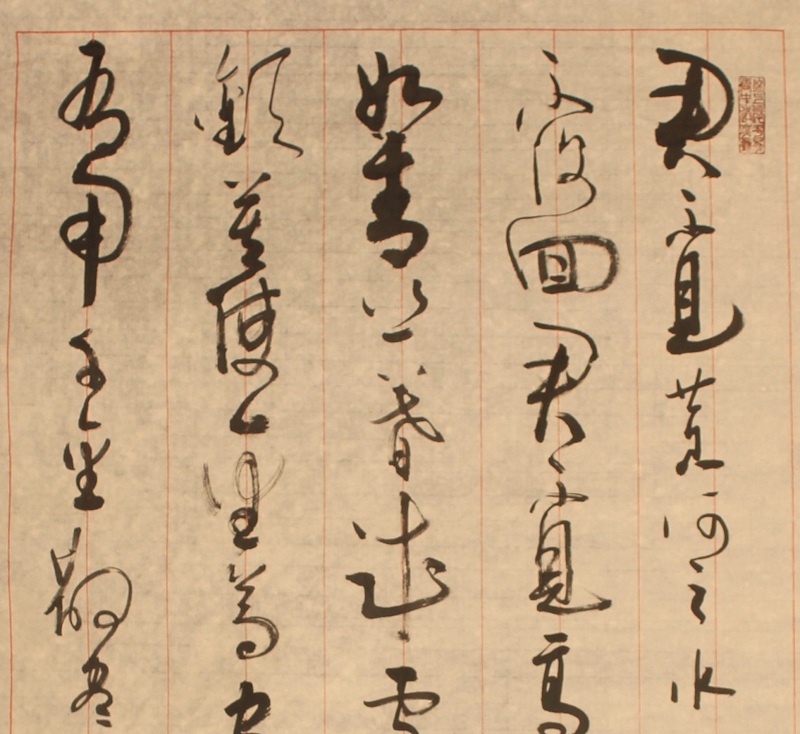 君不見黃河之水
不復回君不見高
如青絲暮成雪
歡莫使金尊空
有用千金散盡